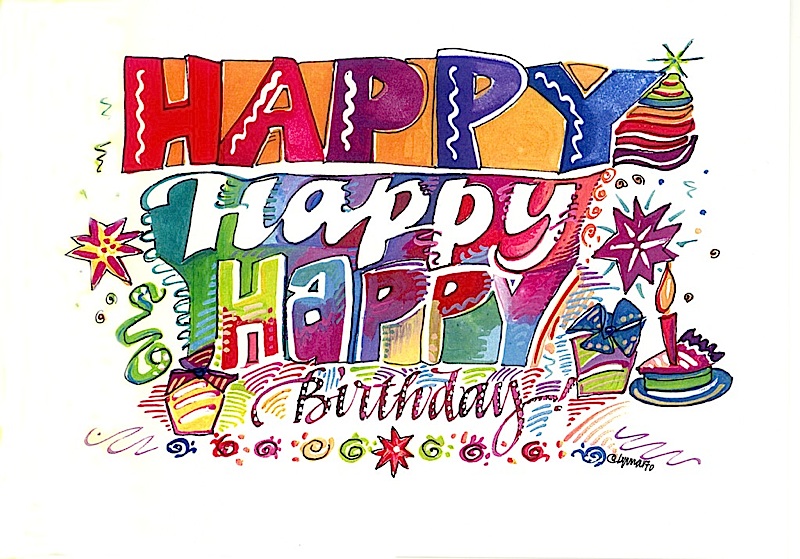 HAPPY
Happy
HAPPY
Birthday